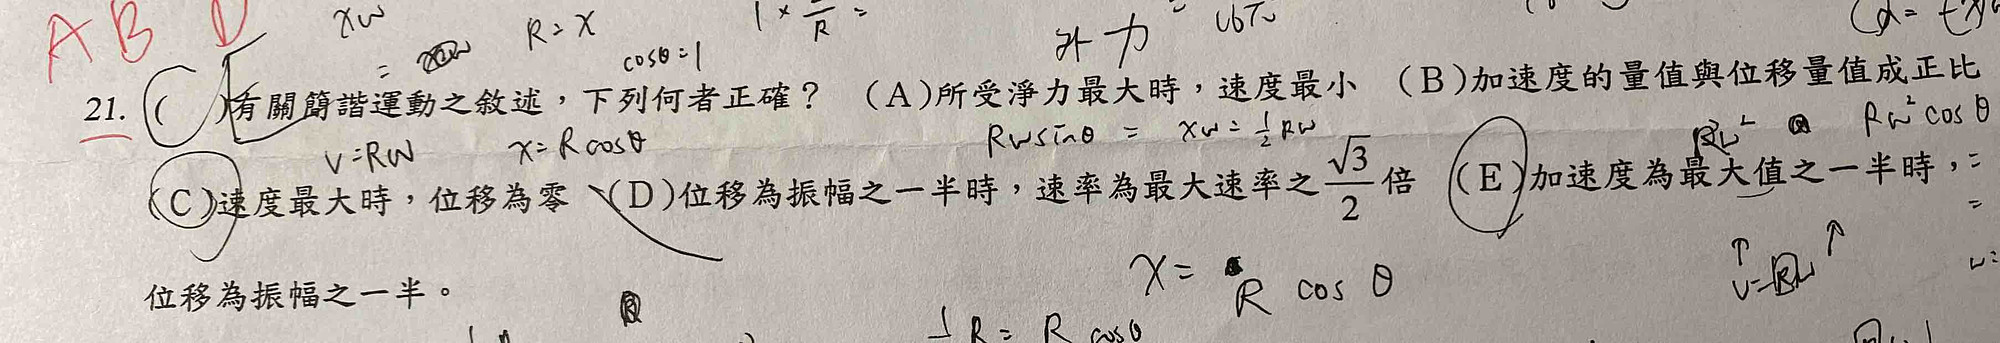 A B D
xw
R=x
cosθ=1
外力
21. ( )有關簡諧運動之敘述，下列何者正確？ (A)所受淨力最大時，速度最小 (B)加速度的量值與位移量值成正比
v=Rw x=Rcosθ Rwsinθ = xw=½Rw Rw²cosθ
(C)速度最大時，位移為零 (D)位移為振幅之一半時，速率為最大速率之√3/2倍 (E)加速度為最大值之一半時，
x= R cos θ
位移為振幅之一半。
R= R cosθ